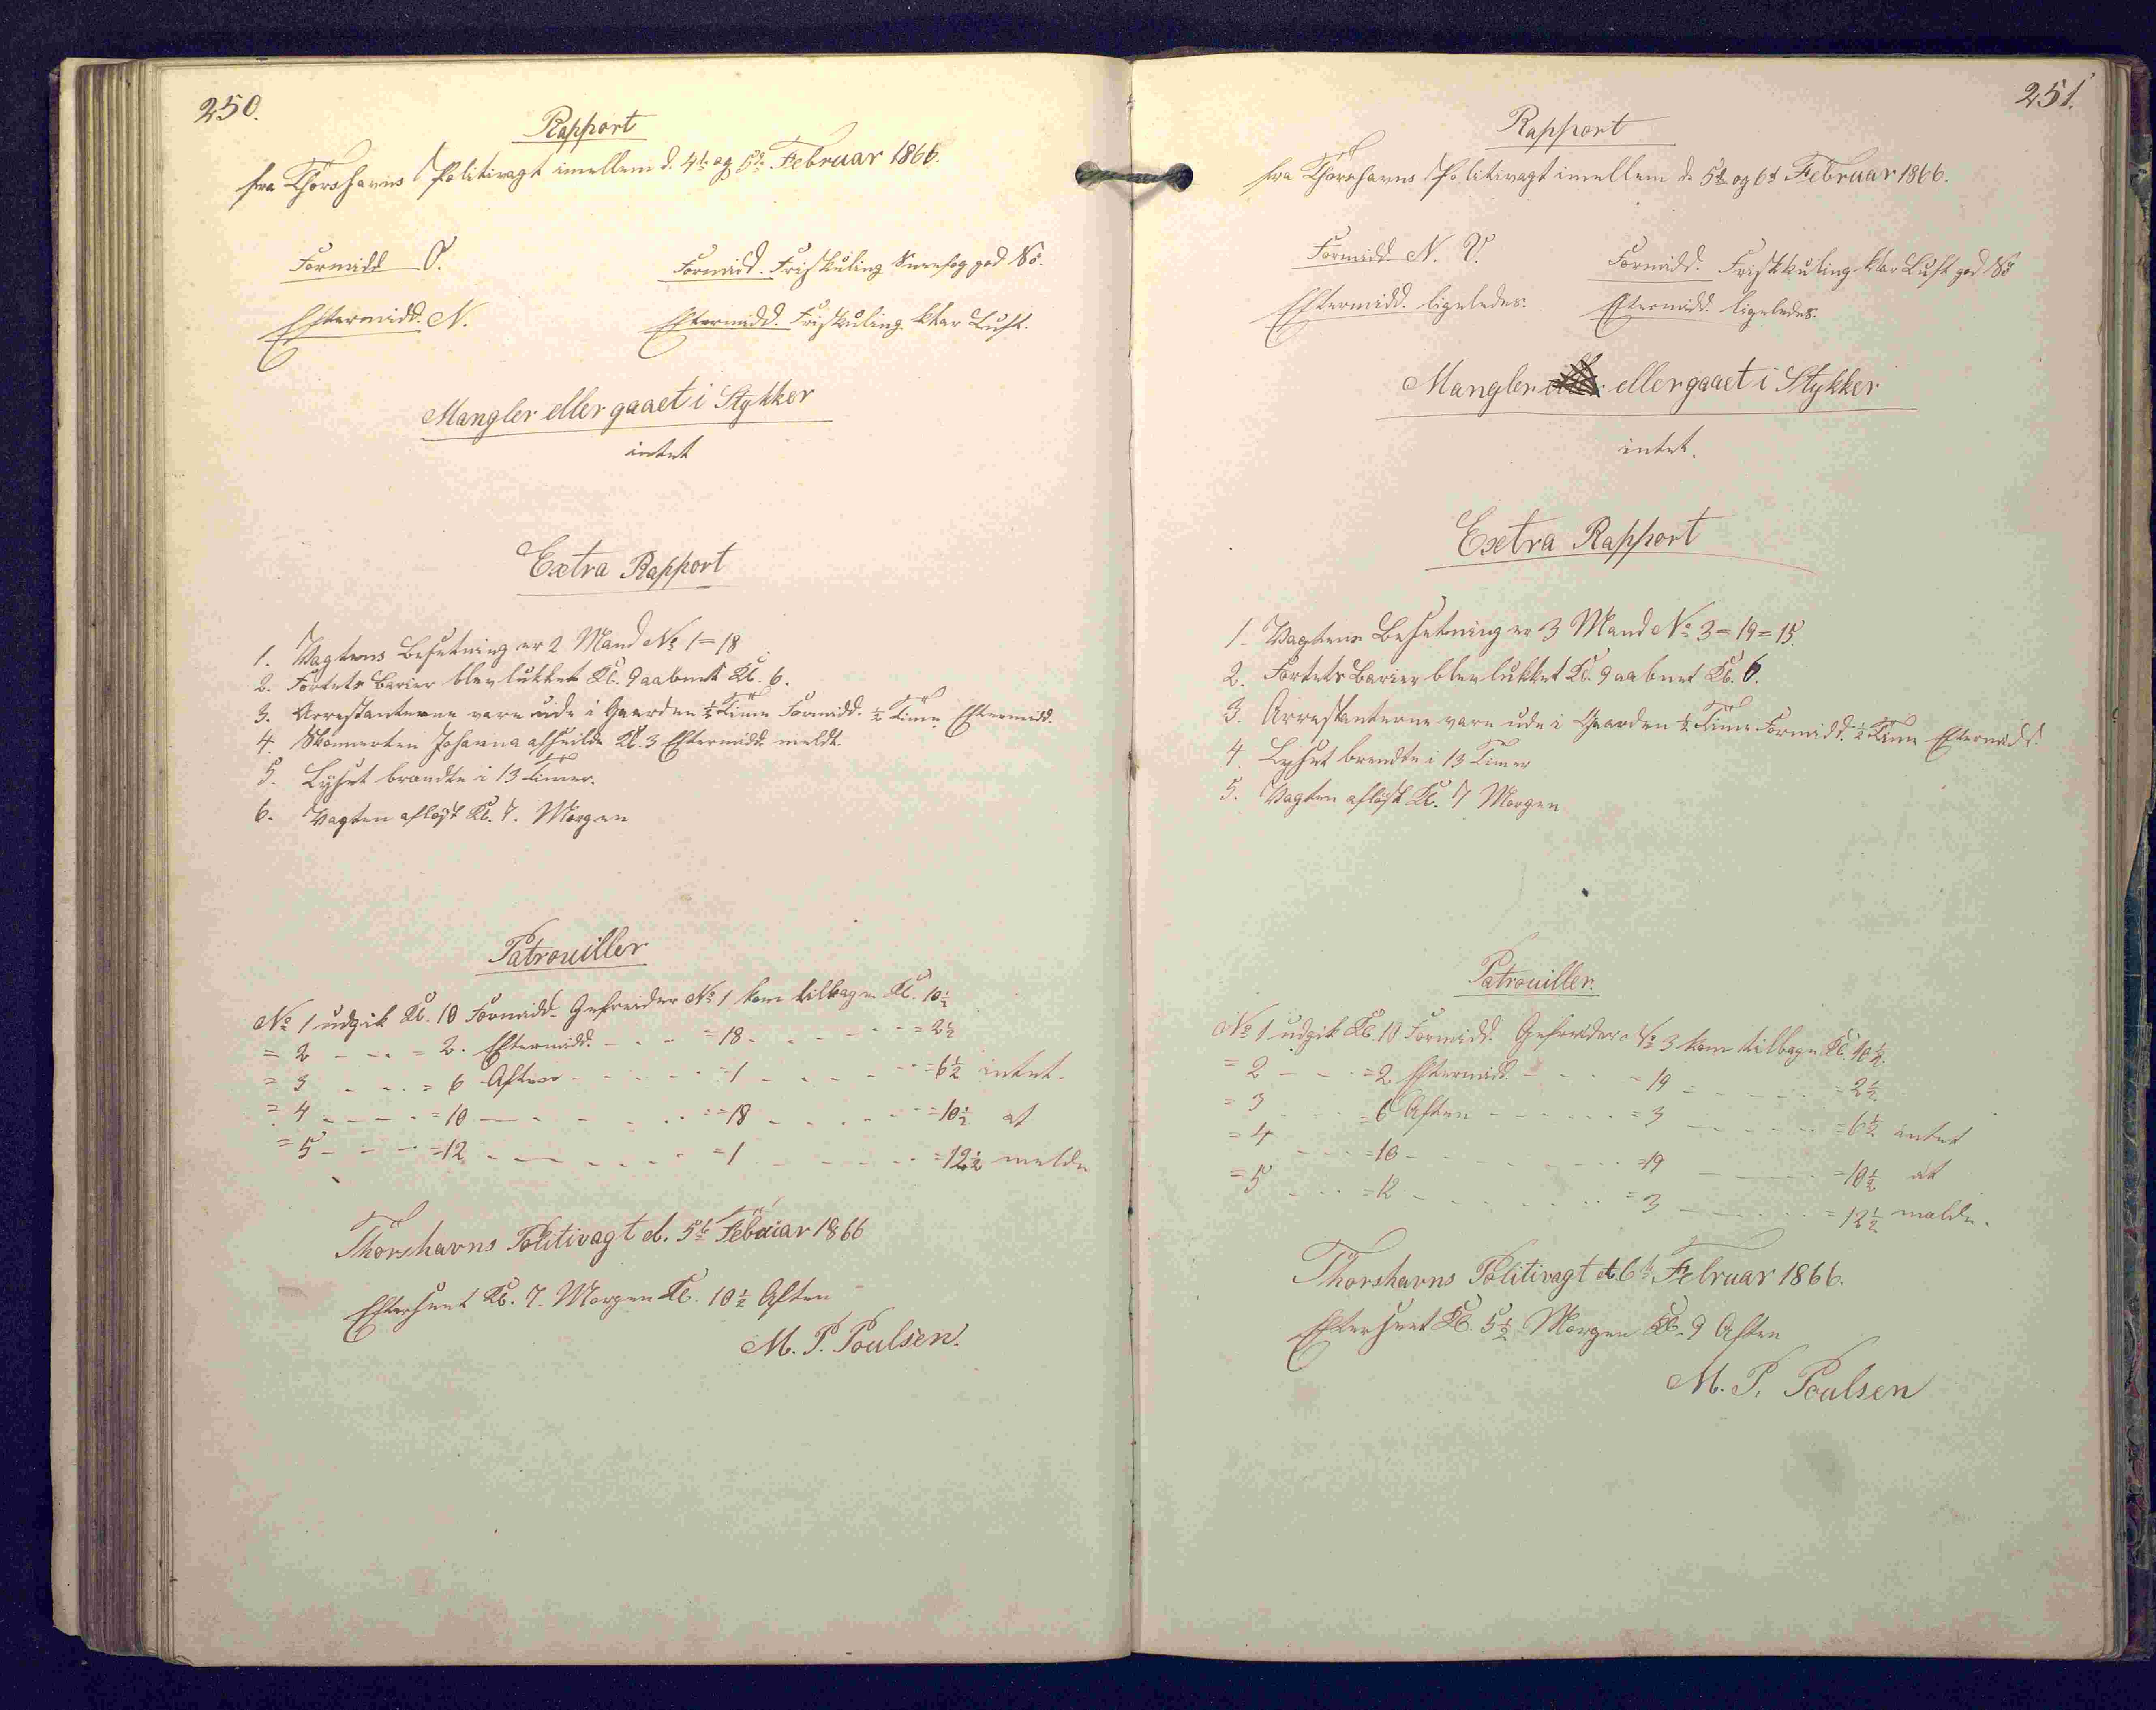 250.
Rapport
fra Thorshavns Politivagt imellem d. 4de og 5te Februar 1866.
Formidd O. Formidd. Friskkuling Sneefog god Sö.
Eftermidd. N. Eftermidd. Friskuling klar Luft.
Mangler eller gaaet i Stykker
intet
Extra Rapport
1. Vagtens Besetning er 2 Mand No 1=18
2. Fortets Barier blev lukket Kl. 9 aabnet Kl. 6.
3. Arrestanterne vare ude i Gaarden ½ Time Formidd. ½ Time Eftermidd.
4. Skonnerten Johanna afseilde Kl. 3 Eftermidd. meldt.
5. Lyset brændte i 13 Timer.
6. Vagten aflöst Kl. 7. Morgen
Patrouiller
No 1 udgik Kl. 10 Formidd. Gefreider No 1 kom tilbage Kl. 10½
= 2 - - - = 2. Eftermidd. - - - =18. - - - - = 2½
= 3 - - - = 6 Aften - - - - =1 - - - - =6½ intet
= 4 - - - =10 - - - - - =18 - - - - =10½ at
= 5 - - - =12 - - - - - =1 - - - - =12½ melde
Thorshavns Politivagt d. 5te Febuiar 1866
Efterseet Kl. 7. Morgen Kl. 10½ Aften
M. P. Poulsen.
251.
Rapport
fra Thorshavns Politivagt imellem d. 5te og 6te Februar 1866.
Formidd. N. V. Formidd. Friskkuling klar Luft god Sö
Eftermidd. ligeledes. Eftermidd. ligeledes.
Mangler eller gaaet i Stykker
intet.
Extra Rapport
1. Vagtens Besetning er 3 Mand No 3=19=15.
2. Fortets Barier blev lukket Kl. 9 aabnet Kl. 6.
3. Arrestanterne vare ude i Gaarden ½ Time Formidd. ½ Time Eftermidd.
4. Lyset brendte i 13 Timer
5. Vagten aflöst Kl. 7 Morgen
Patrouiller.
No 1 udgik Kl. 10 Formidd. Gefreider No 3 kom tilbage Kl. 10½.
= 2 - - - =2 Eftermidd. - - - =19 - - - - = 2½
= 3 - - - =6 Aften - - - - =3 - - - - =6½ intet
= 4 - - - =10 - - - - - =19 - - - - =10½ at
= 5 - - - =12 - - - - - =3 - - - - =12½ melde.
Thorshavns Politivagt d. 6te Februar 1866.
Efterseet Kl. 5½ Morgen Kl. 9 Aften
M. P. Poulsen